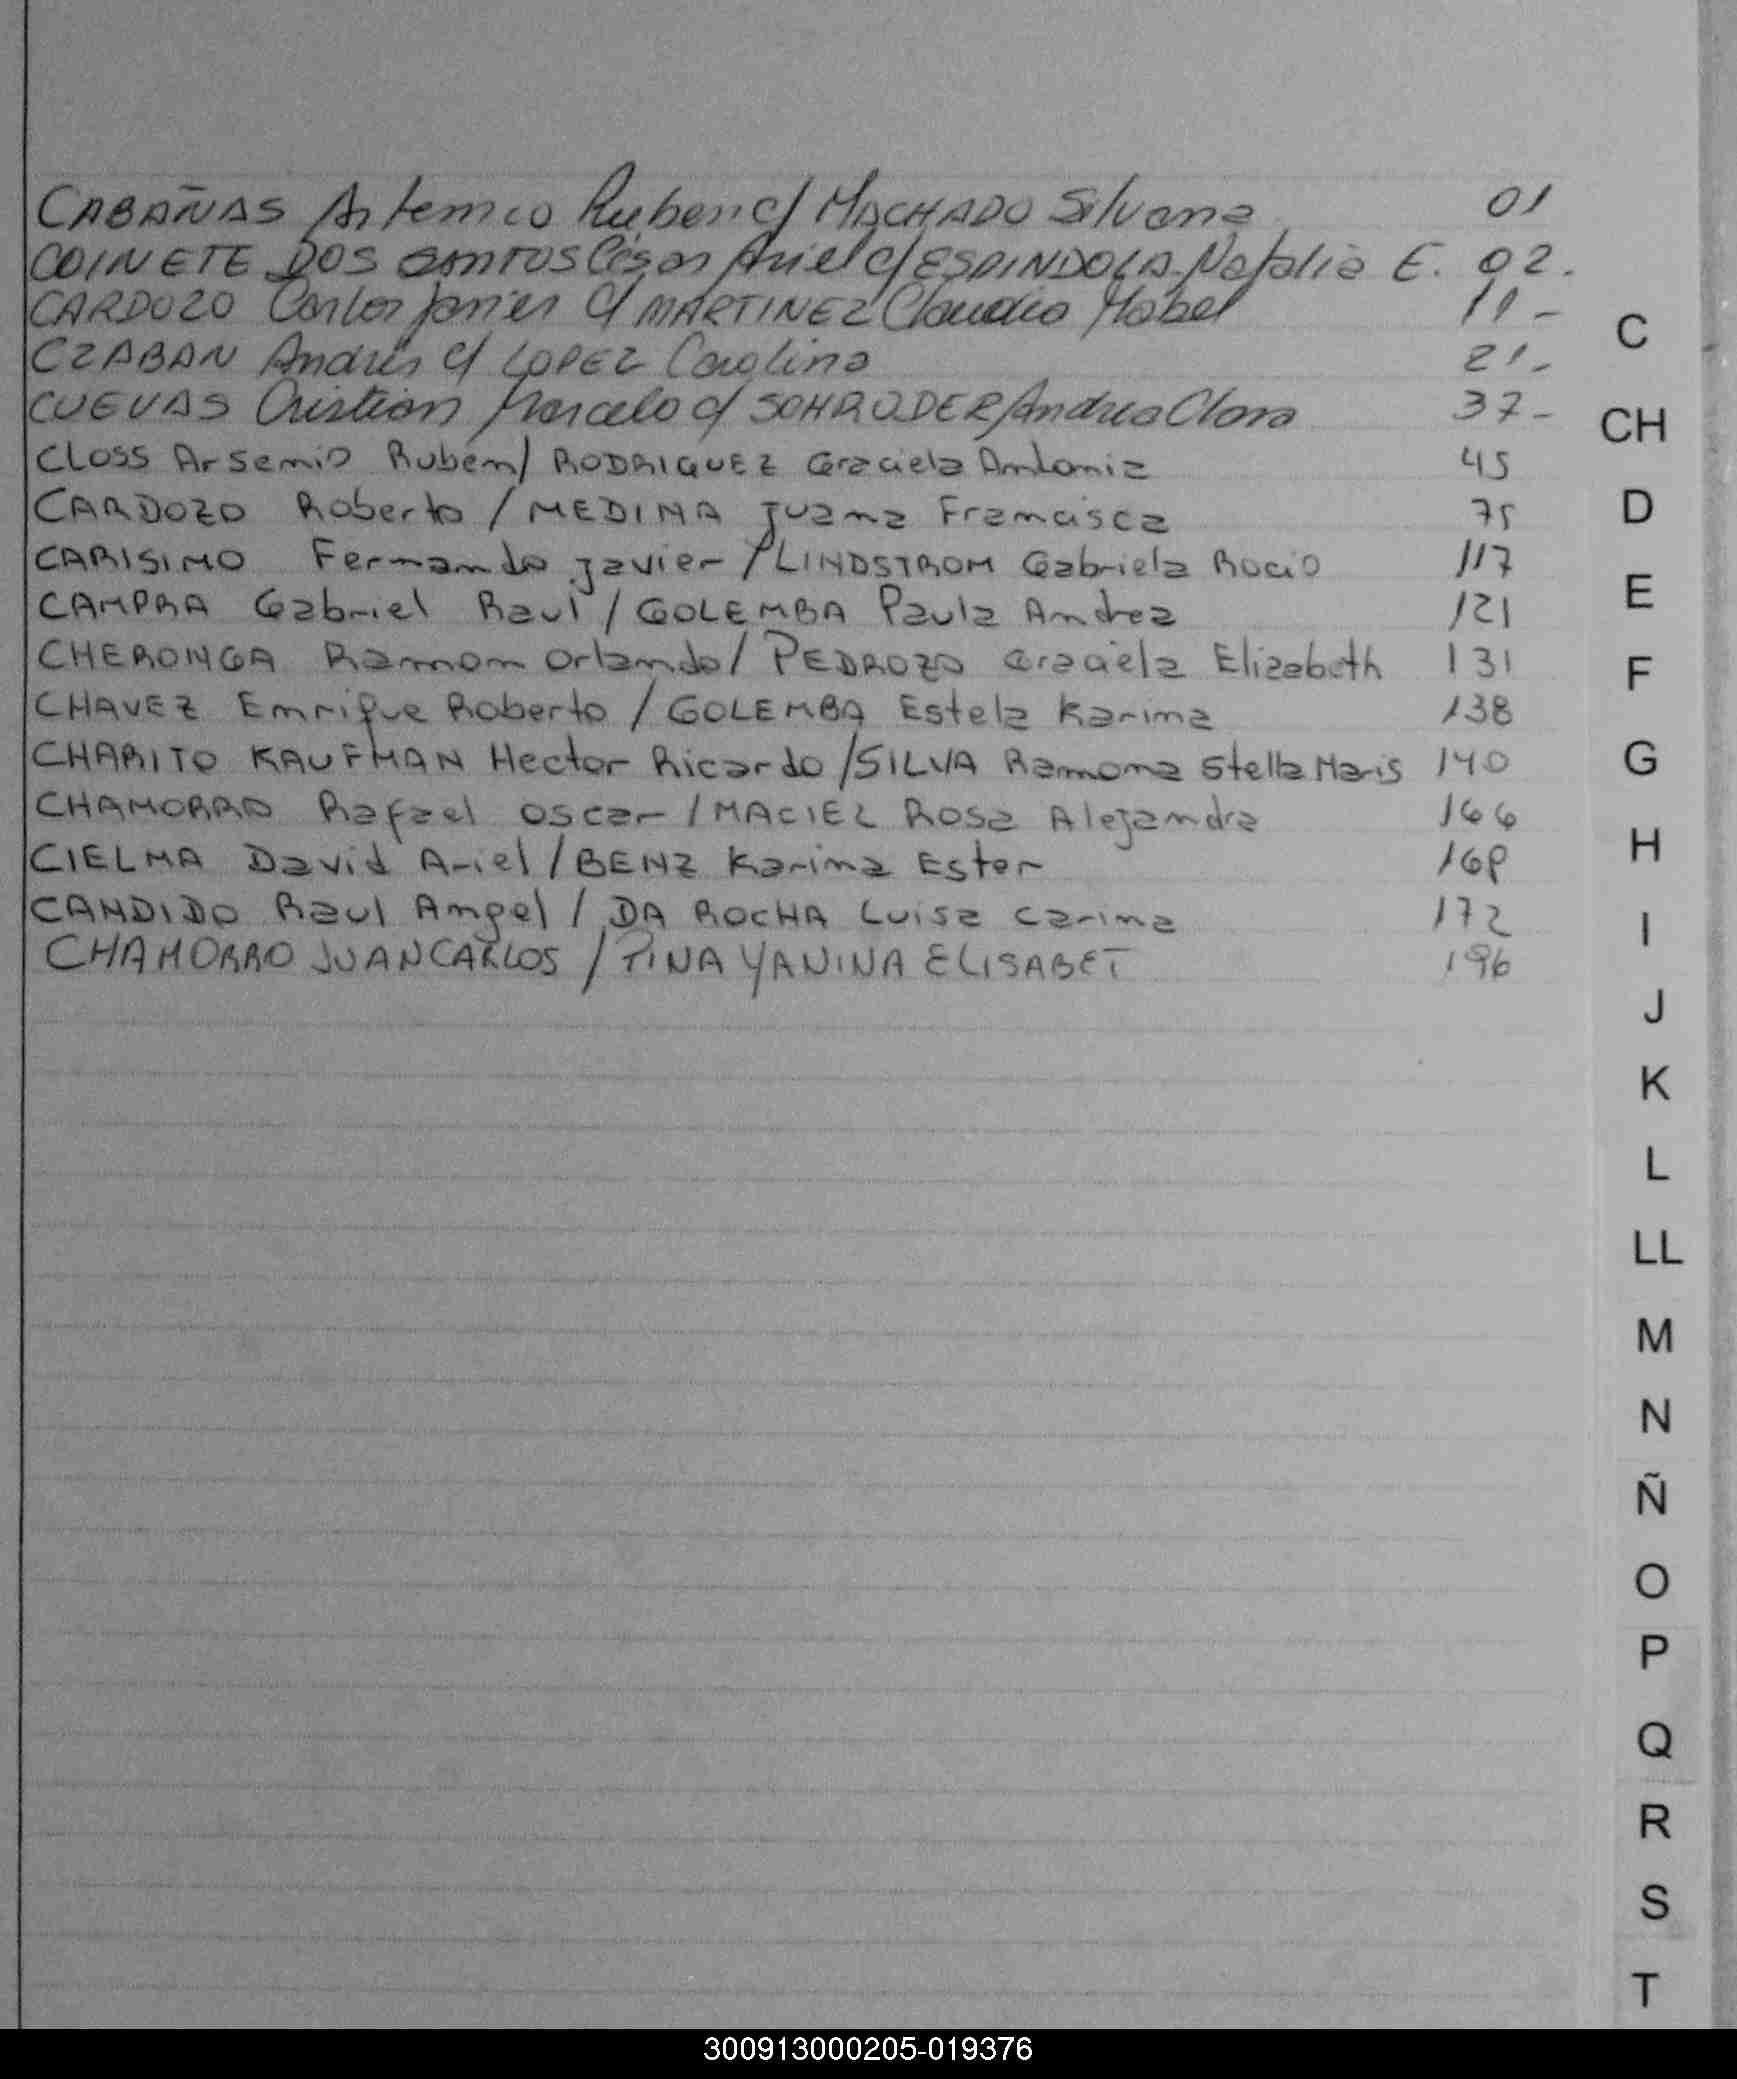 CABAÑAS Artemio Ruben c/ MACHADO Silvana 01
COINETE DOS SANTOS César Ariel c/ ESPINDOLA Natalia E. 02.
CARDOZO Carlos Javier c/ MARTINEZ Claudia Mabel 11-
CZABAN Andrés c/ LOPEZ Carolina 21-
CUEVAS Cristian Marcelo c/ SCHRODER Andrea Clara 37-
CLOSS Arsenio Ruben / RODRIGUEZ Graciela Antonia 45
CARDOZO Roberto / MEDINA Juana Francisca 75
CARISIMO Fernando Javier / LINDSTROM Gabriela Rocio 117
CAMPRA Gabriel Raul / GOLEMBA Paula Andrea 121
CHERONGA Ramon Orlando / PEDROZO Graciela Elizabeth 131
CHAVEZ Enrique Roberto / GOLEMBA Estela Karina 138
CHARITO KAUFMAN Hector Ricardo / SILVA Ramona Stella Maris 140
CHAMORRO Rafael Oscar / MACIEL Rosa Alejandra 166
CIELMA David Ariel / BENZ Karina Ester 168
CANDIDO Raul Angel / DA ROCHA Luisa Carina 172
CHAMORRO JUAN CARLOS / PINA YANINA ELISABET 196
C
CH
D
E
F
G
H
I
J
K
L
LL
M
N
Ñ
O
P
Q
R
S
T
300913000205-019376